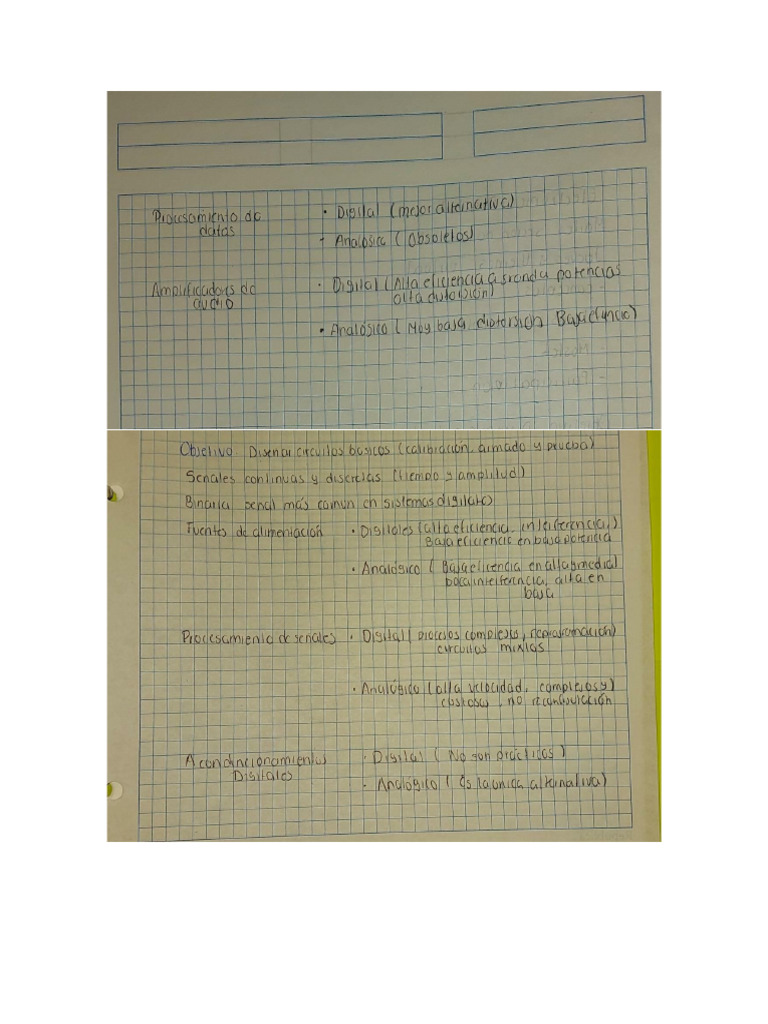 Procesamiento de
datos
• Digital (mejor alternativa)
• Analósica (Obsoletos)
Amplificadores de
audio
• Digital (Alta eficiencia a grandes potencias
alta distorsión)
• Analósico ( Muy baja distorsion, Baja eficiencia)
Objetivo Disenar circuitos basicos (calibración, armado y prueba)
Senales continuas y discretas (tiempo y amplitud)
Binaria senal más comun en sistemas digitales
Fuentes de alimentación
• Digitales (alta eficiencia, interferencia,)
Baja eficiencia en baja potencia
• Analógico ( Baja eficencia en alta y media)
poca interferencia, alta en
baja
Procesamiento de señales
• Digital ( procesos complejos, reprogramación)
circuitos mixtos
• Analógico (alta velocidad, complejos y)
costosos, no reconfiguración
Acondincionamientos
Digitales
• Digital ( No son prácticos )
• Analógico ( Es la unica alternativa)